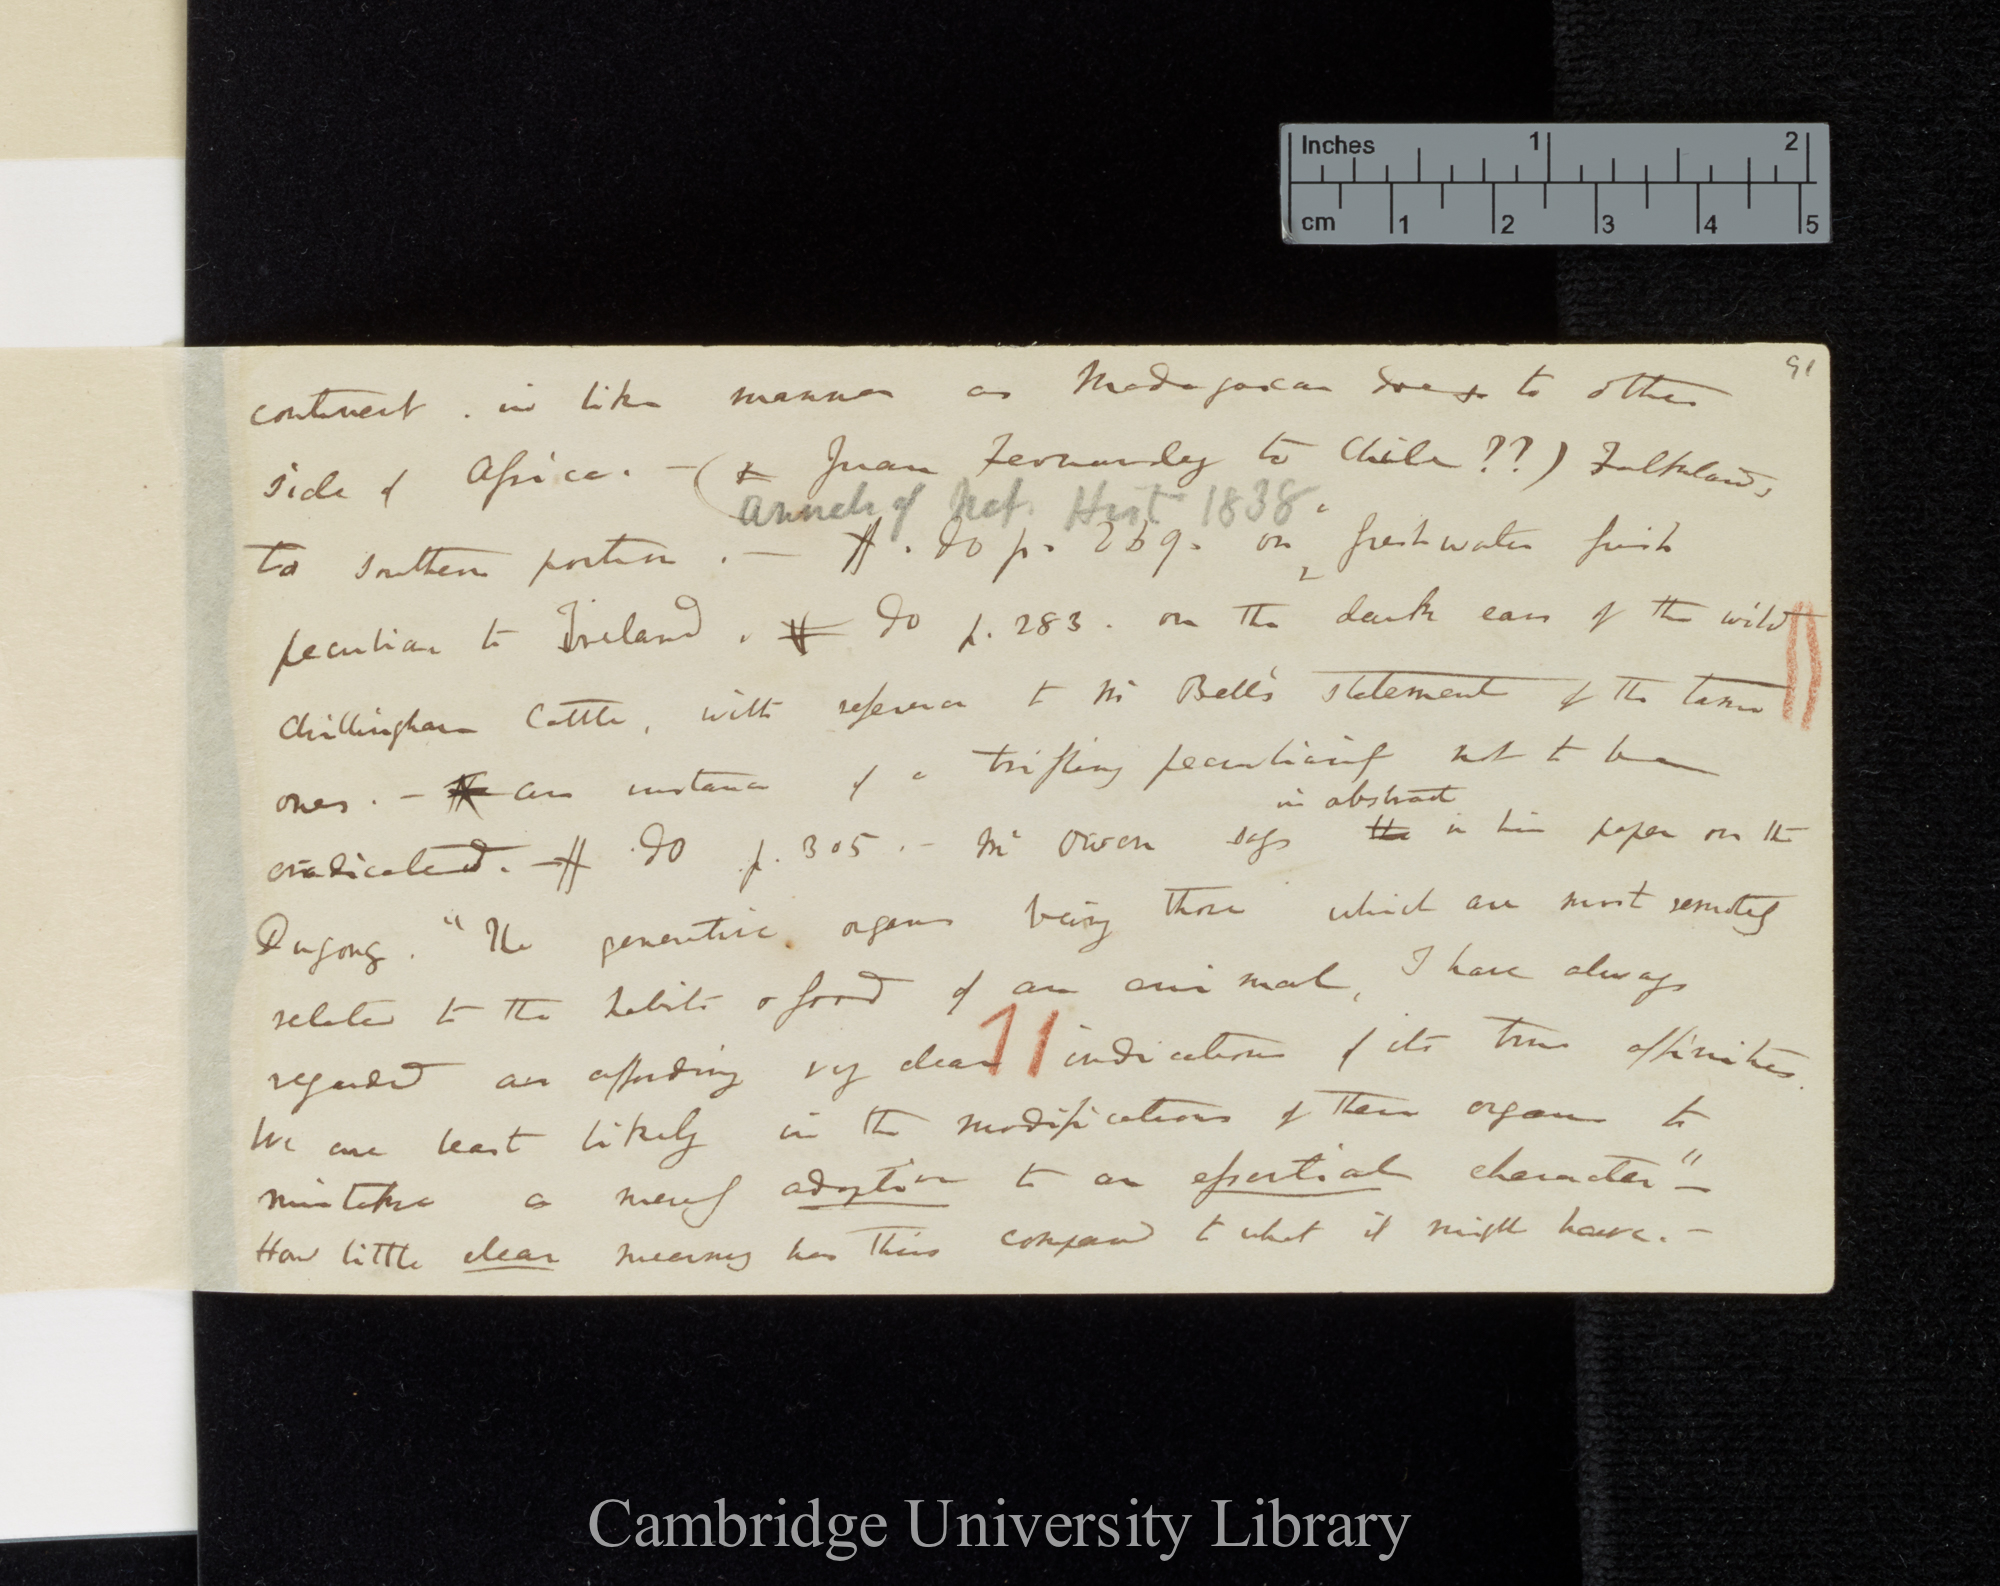 Inches 1 2
cm 1 2 3 4 5
91
continent. in like manner as Madagascar does to other
side of Africa. — ( Juan Fernandez to Chile ??) Falklands,
Annals of Nat. Hist 1838.
to southern portion. — do p. 269. on 2 freshwater fish
peculiar to Ireland. do p. 283. on the dark ears of the wild
Chillingham Cattle, with reference to Mr Bell's statement of the tame
ones. — an instance of a trifling peculiarity not to be
in abstract
eradicated. — do p. 305. — Mr Owen says the in his paper on the
Dugong. "The generative organs being those which are most remotely
related to the habits & food of an animal, I have always
regarded as affording very clear indications of its true affinities.
We are least likely in the modifications of these organs to
mistake a merely adaptive to an essential character" —
How little clear meaning has this compared to what it might have. —
Cambridge University Library